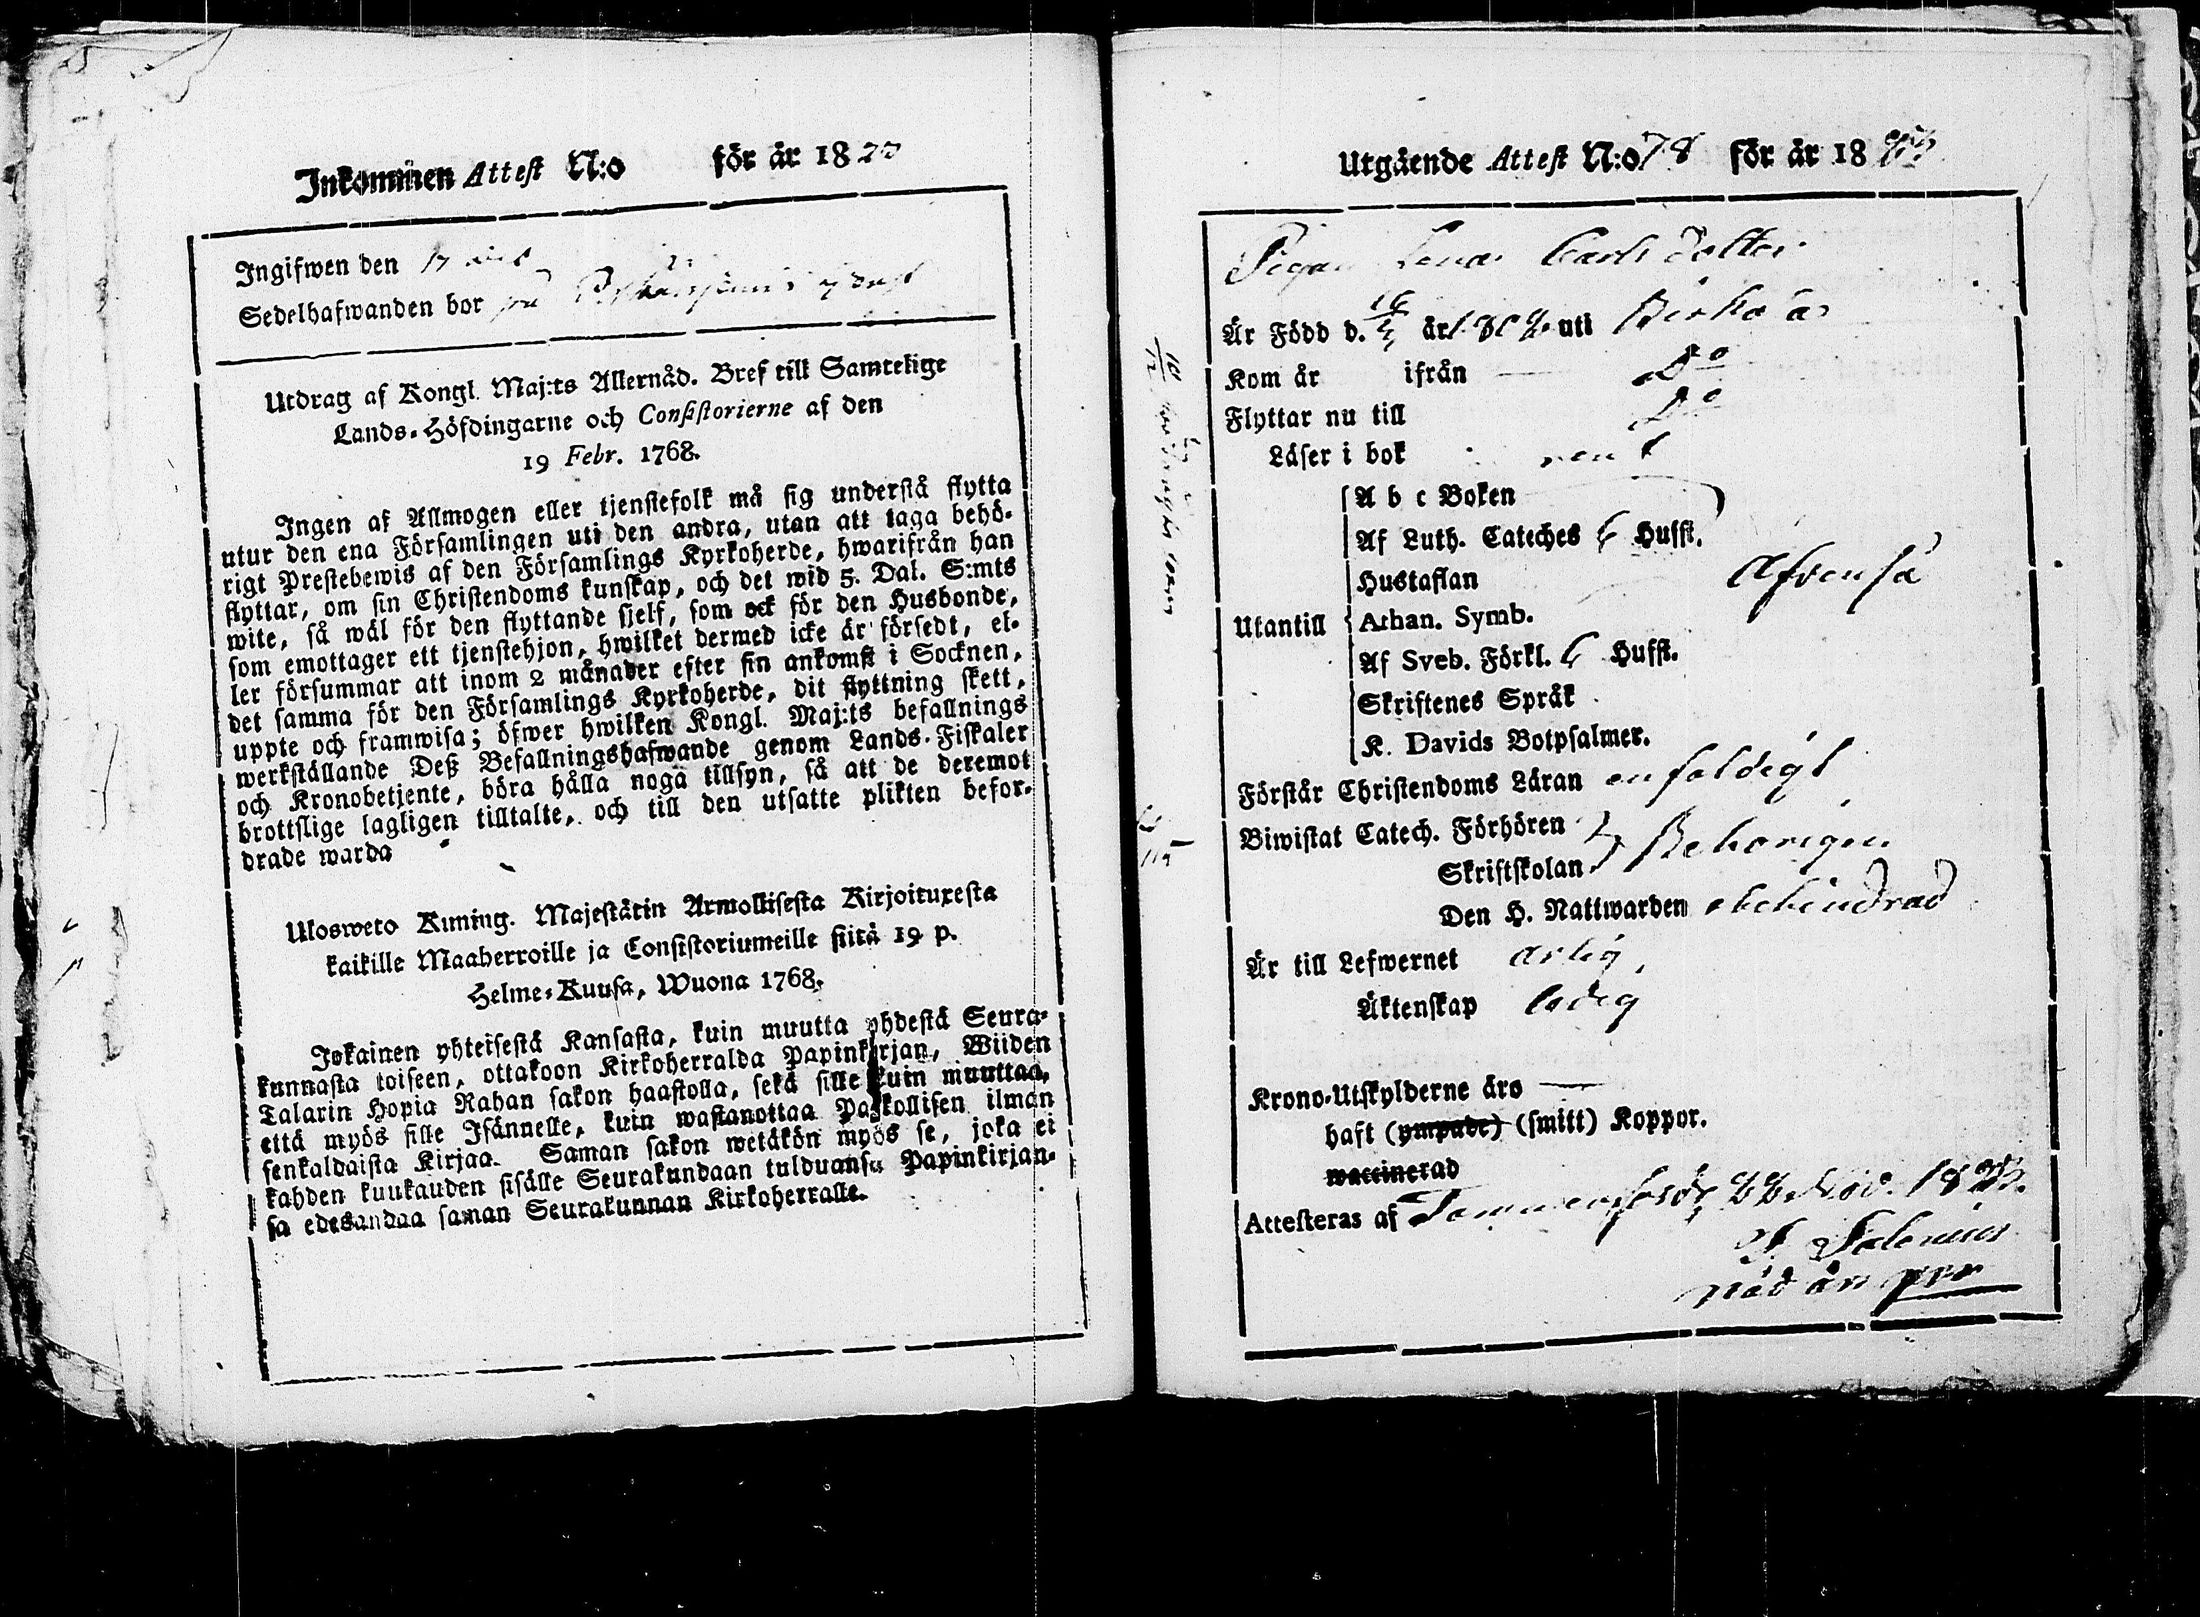 Inkommen Attest N:o för år 18
Ingifwen den
Sedelhafwanden bor på
Utdrag af Kongl. Maj:ts Allernåd. Bref till Samtelige
Lands-Höfdingarne och Consistorierne af den
19 Febr. 1768.
Ingen af Allmogen eller tjenstefolk må sig understå flytta
utur den ena Församlingen uti den andra, utan att taga behö-
rigt Prestebewis af den Församlings Kyrkoherde, hwarifrån han
flyttar, om sin Christendoms kunskap, och det wid 5. Dal. S:mts
wite, så wäl för den flyttande sjelf, som ock för den Husbonde,
som emottager ett tjenstehjon, hwilket dermed icke är försedt, el-
ler försummar att inom 2 månader efter sin ankomst i Socknen,
det samma för den Församlings Kyrkoherde, dit flyttning skett,
uppte och framwisa; öfwer hwilken Kongl. Maj:ts befallnings
werkställande Deß Befallningshafwande genom Lands-Fiskaler
och Kronobetjente, böra hålla noga tillsyn, så att de deremot
brottslige lagligen tilltalte, och till den utsatte plikten befor-
drade warda
Ulosweto Kuning. Majestätin Armollisesta Kirjoituxesta
kaikille Maaherroille ja Consistoriumeille siitä 19 p.
Helme-Kuusa, Wuona 1768.
Jokainen yhteisestä Kansasta, kuin muutta yhdestä Seura-
kunnasta toiseen, ottakoon Kirkoherralda Papinkirjan, Wiiden
Talarin Hopia Rahan sakon haastolla, sekä sille kuin muuttaa,
että myös sille Isännelle, kuin wastanottaa Palkollisen ilman
senkaldaista Kirjaa. Saman sakon wetäkön myös se, joka ei
kahden kuukauden sisälle Seurakundaan tulduansa Papinkirjan-
sa edesandaa saman Seurakunnan Kirkoherralle.
Utgående Attest N:o 78 för år 18
Pigan Lena Carlsdotter
Är Född d. 16 år 180 uti Birkala
Kom år ifrån — Do
Flyttar nu till Do
Läser i bok rent
A b c Boken
Af Luth. Cateches 6 Hufst.
Hustaflan Afvenså
Utantill Athan. Symb.
Af Sveb. Förkl. 6 Hufst.
Skriftenes Språk
K. Davids Botpsalmer.
Förstår Christendoms Läran enfaldigt
Biwistat Catech. Förhören
Skriftskolan Behörigen
Den H. Nattwarden obehindrad
Är till Lefwernet ärlig,
Äktenskap ledig
Krono-Utskylderne äro —
haft (ympade) (smitt) Koppor.
waccinerad
Attesteras af Tammerfors d. Nov. 18